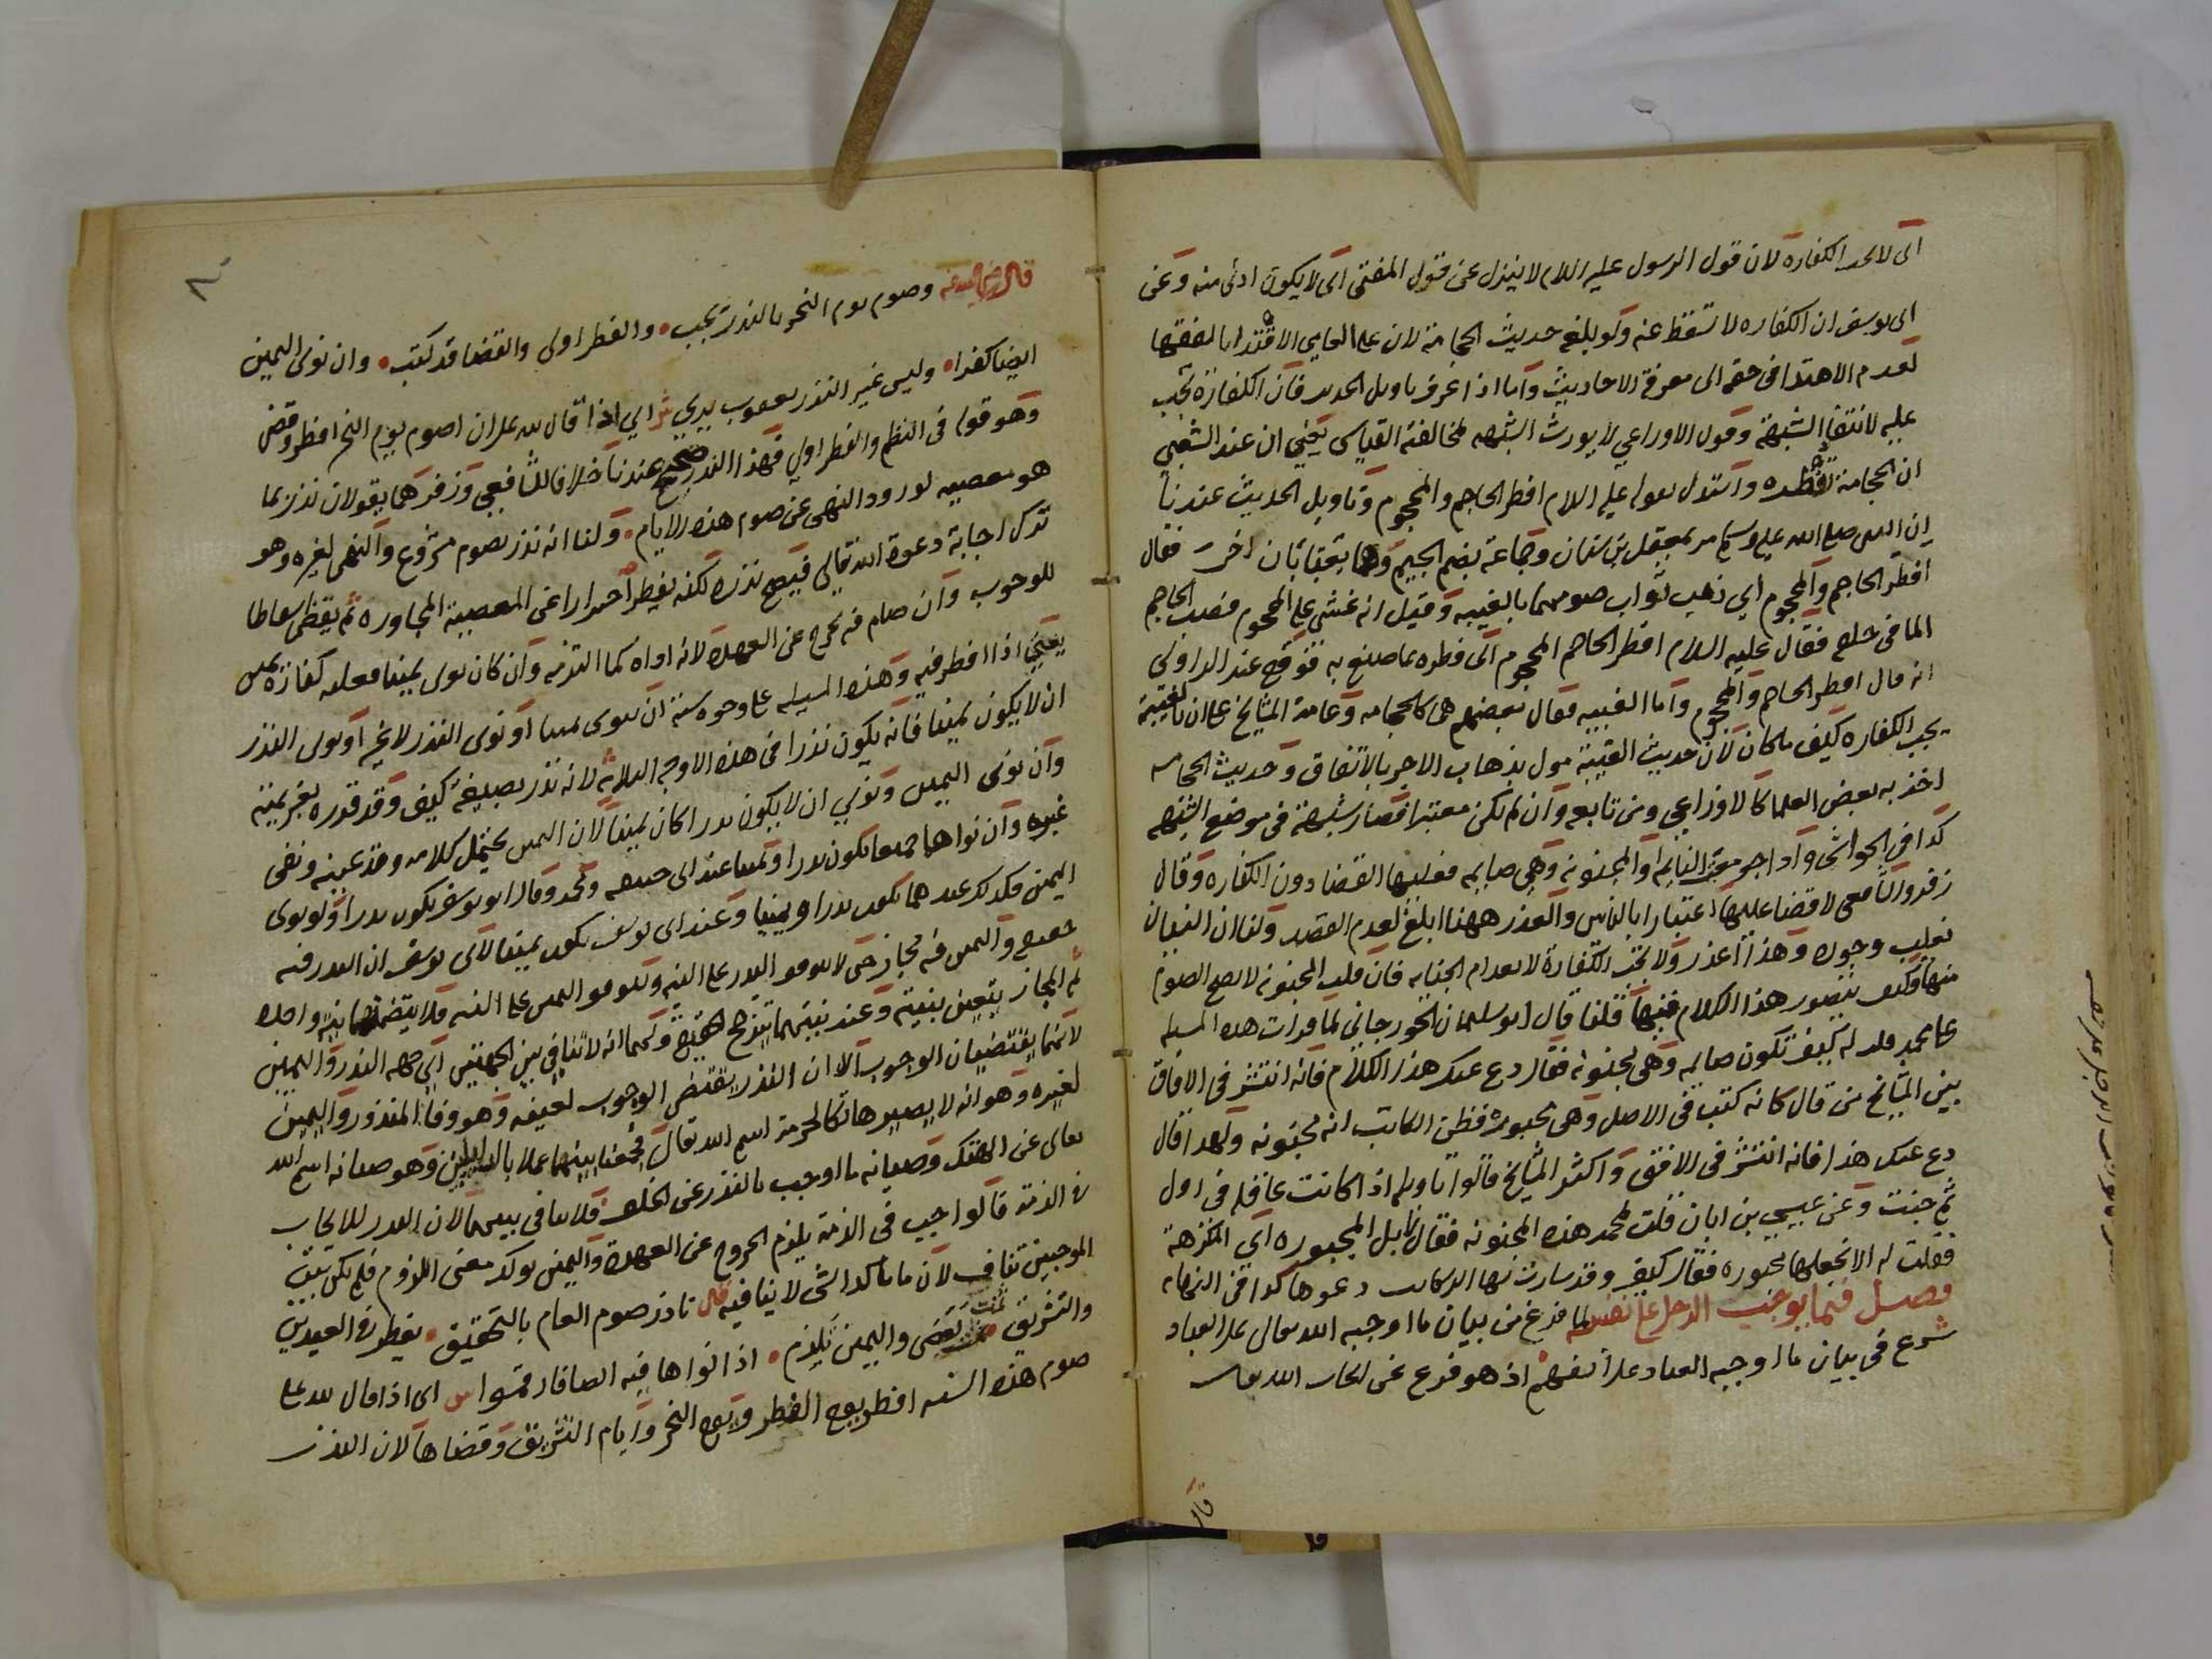 اى لا تجب الكفارة لان قول الرسول عليه السلام لا ينزل عن قول المفتى اى لا يكون ادنى منه وعن
ابى يوسف ان الكفاره لا تسقط عنه ولو بلغه حديث الحجامة لان على العامى الاقتدا بالفقها
لعدم الاهتدا فى حقه الى معرفة الاحاديث واما اذا عرف تاويل الحديث فان الكفارة تجب
عليه لانتفا الشبهة وقول الاوزاعي لا يورث الشبهه لمخالفته القياس يعني ان عند الشعبي
ان الحجامة تفطره واستدل بقوله عليه السلام افطر الحاجم والمحجوم وتاويل الحديث عندنا
ان النبى صلى الله عليه وسلم مر بمعقل بن سنان وجماعة بضم الجيم وهما يغتابان اخر فقال
افطر الحاجم والمحجوم اي ذهب ثواب صومهما بالغيبه وقيل انه غشى على المحجوم فصب الحاجم
الما فى حلقه فقال عليه السلام افطر الحاجم المحجوم اى فطره بما صنع به فوقع عند الراوى
انه قال افطر الحاجم والمحجوم واما الغيبه فقال بعضهم هى كالحجامه وعامة المشايخ على ان بالغيبة
يجب الكفاره كيف ما كان لان حديث الغيبة مول بذهاب الاجر بالاتفاق وحديث الحجامه
اخذ به بعض العلما كالاوزاعي ومن تابعه وان لم يكن معتبرا فصار شبهة فى موضع الشبهه
كذا فى الحواشى واذا جومعت النايمه او المجنونه وهى صايمه فعليها القضا دون الكفاره وقال
زفر والشافعى لا قضا عليهما اعتبارا بالناس والعذر ههنا ابلغ لعدم القصد ولنا ان النسيان
يغلب وجوده وهذا اعذر ولا تجب الكفارة لانعدام الجنايه فان قلت المجنونه لا يصح الصوم
منها وكيف يتصور هذا الكلام فيها قلنا قال ابو سليمان الجوزجاني لما قرات هذه المسله
على محمد قلت له كيف تكون صايمه وهى مجنونه فقال دع عنك هذا الكلام فانه انتشر فى الافاق
بين المشايخ من قال كانه كتب فى الاصل وهى مجبورة فظن الكاتب انه مجنونه ولهذا قال
دع عنك هذا فانه انتشر فى الافق واكثر المشايخ قالوا تاويله اذا كانت عاقله فى اول
ثم جنت وعن عيسى بن ابان قلت لمحمد هذه المجنونه فقال لا بل المجبوره اي المكرهة
فقلت له الا نجعلها مجبوره فقال كيف وقد سارت بها الركاب دعوها كذا فى النهايه
فصل فيما يوجب الرجل على نفسه لما فرغ من بيان ما اوجبه الله تعالى على العباد
شرع فى بيان ما اوجبه العباد على انفسهم اذ هو فرع عن ايجاب الله تعالى
قال
٨٠
قال رضى الله عنه وصوم يوم النحر بالنذر يجب والفطر اولى والقضا قد كتب وان نوى اليمين
ايضا كفرا وليس غير النذر يعقوب يرى ش اي اذا قال لله على ان اصوم يوم النحر افطر وقضى
وهو قوله فى النظم والفطر اولي فهذا النذر صحيح عندنا خلافا للشافعي وزفر هما يقولان نذر بما
هو معصيه لورود النهى عن صوم هذه الايام ولنا انه نذر بصوم مشروع والنهى لغيره وهو
ترك اجابة دعوة الله تعالى فيصح نذره لكنه يفطر احترازا عن المعصية المجاوره ثم يقضى اسقاطا
للوجوب وان صام فيه يخرج عن العهدة لانه اداه كما التزمه وان كان نوى يمينا فعليه كفارة يمين
يعني اذا افطر فيه وهذه المسله على وجوه ستة ان نوى شيا او نوى النذر لا غير او نوى النذر
ان لا يكون يمينا فانه يكون نذرا فى هذه الاوجه الثلاثة لانه نذر بصيغة كيف وقد قرره بعزيمته
وان نوى اليمين ونوى ان لا يكون نذرا كان يمينا لان اليمين محتمل كلامه وقد عينه ونفى
غيره وان نواهما جميعا يكون نذرا ويمينا عند ابى حنيفه ومحمد وقال ابو يوسف يكون نذرا ولو نوى
اليمين فكذلك عندهما يكون نذرا ويمينا وعند ابى يوسف يكون يمينا لابى يوسف ان النذر فيه
حقيقه واليمين فيه مجاز حتى لا يتوقف النذر على النيه ويتوقف اليمين على النيه فلا ينتظمهما نية واحدة
ثم المجاز يتعين بنيته وعند نيتهما يترجح الحقيقة ولهما انه لا تنافى بين الجهتين اى جهه النذر واليمين
لانهما يقتضيان الوجوب الا ان النذر يقتضى الوجوب لعينه وهو وفا المنذور واليمين
لغيره وهو انه لا يصير هاتكا لحرمة اسم الله تعالى فجمعنا بينهما عملا بالدليلين وهو صيانه اسم الله
تعالى عن الهتك وصيانه ما اوجب بالنذر عن الخلف فلا تنافى بينهما لان النذر للايجاب
فى الذمة قالواجب فى الذمة يلزم الخروج عن العهدة واليمين يوكد معنى اللزوم فلم يكن بين
الموجبين تناف لان ما ياكد الشى لا ينافيه قال ناذر صوم العام بالتحقيق يفطر فى العيدين
والتشريق ثمت يقضى واليمين يلزم اذا نواها فيه ايضا فارقموا ش اى اذا قال لله على
صوم هذه السنه افطر يوم الفطر ويوم النحر وايام التشريق وقضاها لان النذر